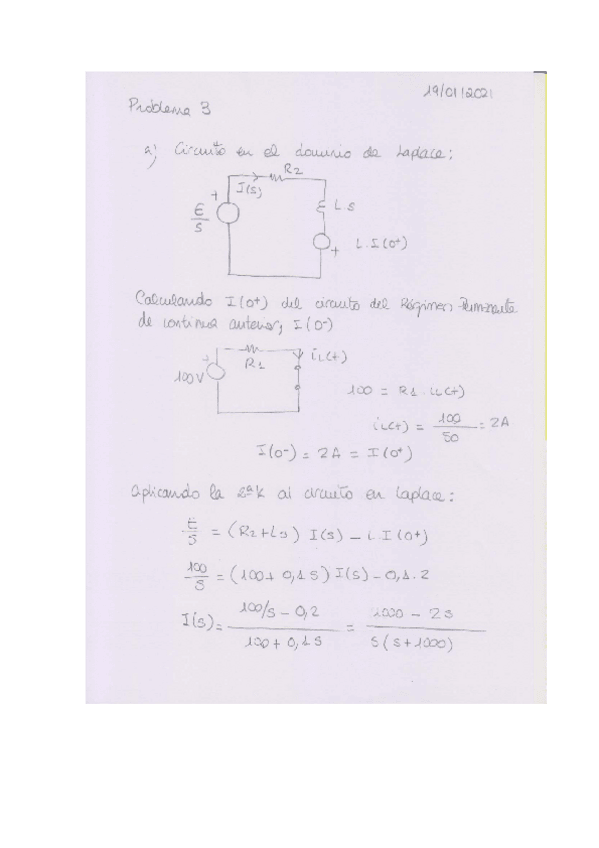 19/01/2021
Problema 3
a) Circuito en el dominio de Laplace:
R2
I(s)
+
E/s
L.S
+ L.I(0+)
Calculando I(0+) del circuito del Régimen Permanente
de continua anterior, I(0-)
iL(t)
R1
100V
100 = R1.iL(t)
iL(t) = 100/50 = 2A
I(0-) = 2A = I(0+)
Aplicando la 2ªK al circuito en Laplace:
E/s = (R2+Ls) I(s) - L.I(0+)
100/s = (100+0,1s) I(s) - 0,1.2
I(s) = (100/s - 0,2)/(100+0,1s) = (1000-2s)/(s(s+1000))